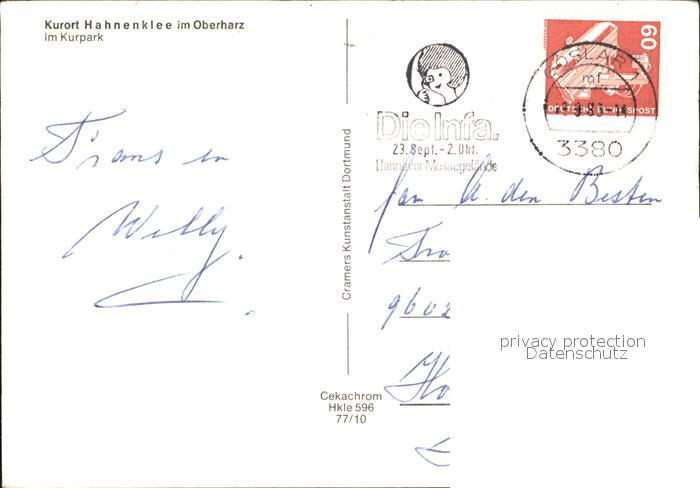 Kurort Hahnenklee im Oberharz
Im Kurpark
Willy.
Cramers Kunstanstalt Dortmund
Cekachrom
Hkle 596
77/10
Die Infa.
23. Sept. - 2. Okt.
Hannover-Messegelände
60
DEUTSCHE BUNDESPOST
SLAR 1
mf
3380
Fam A. den Besten
9602
Ho
privacy protection
Datenschutz